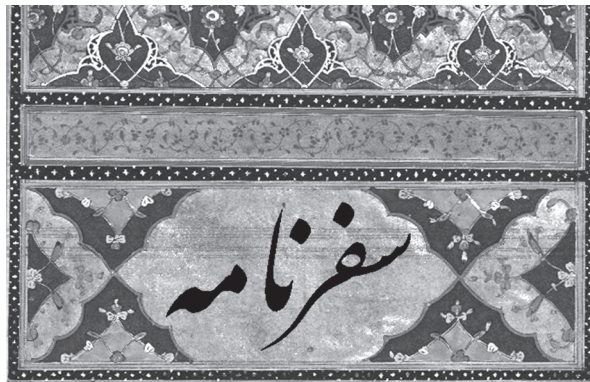 سفرنامه